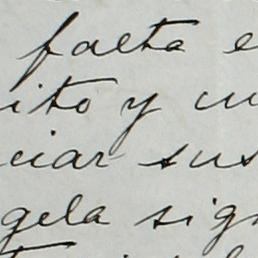 falta e
ito y cu
ciar sus
gela sig